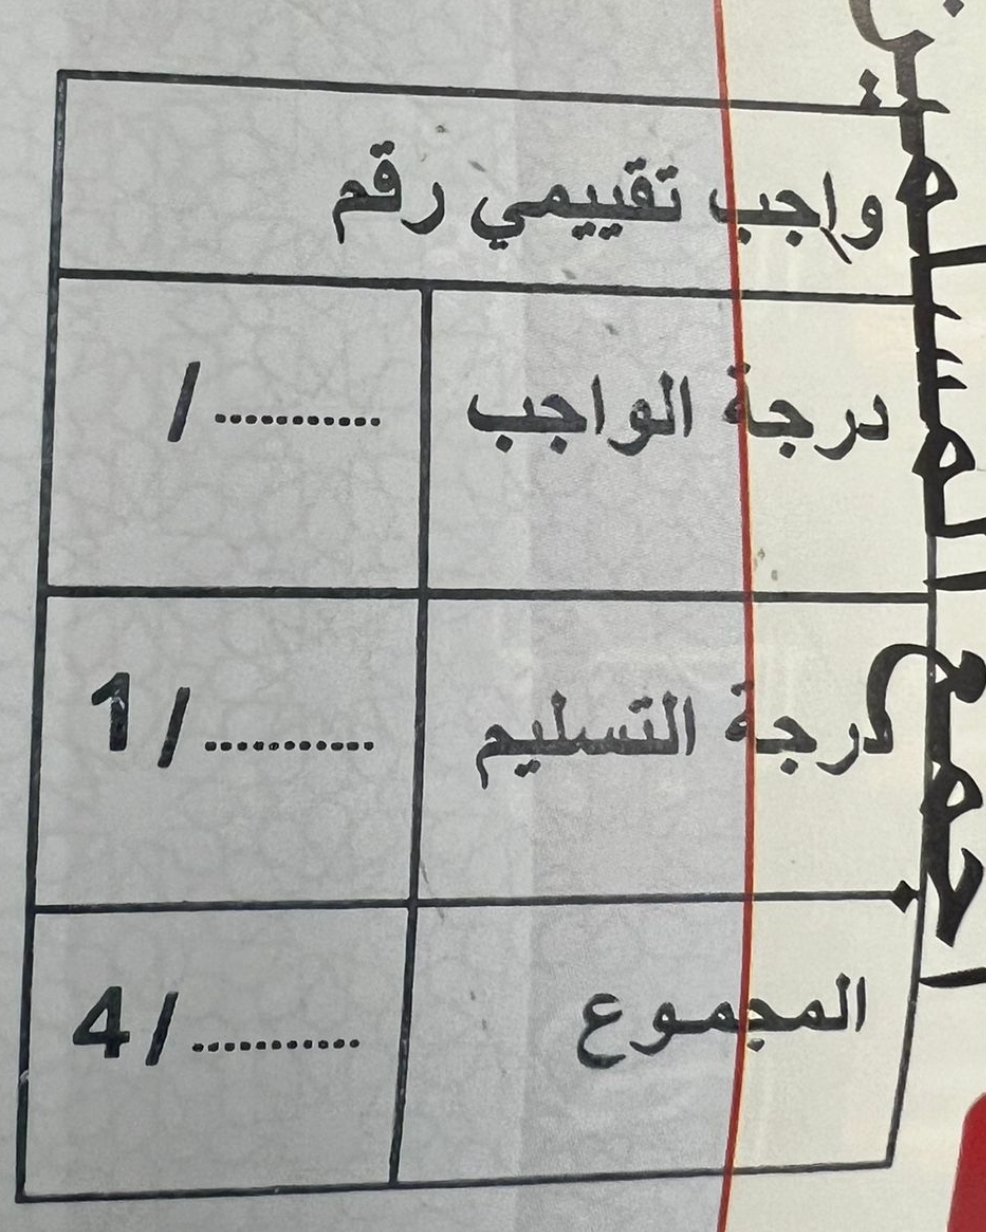 واجب تقييمي رقم
درجة الواجب ........... /
درجة التسليم ........... / 1
المجموع ........... / 4